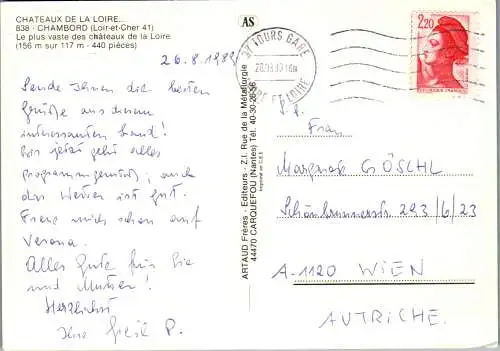 CHATEAUX DE LA LOIRE...
838 - CHAMBORD (Loir-et-Cher 41)
Le plus vaste des châteaux de la Loire
(156 m sur 117 m - 440 pièces)
26.8.1989
Sende Ihnen die besten
Grüße aus diesem
interessanten Land!
Bis jetzt geht alles
programmgemäß, auch
das Wetter ist gut.
Freue mich schon auf
Verona.
Alles Gute für Sie
und Mutter!
Herzlichst
Ihre P.
AS
ARTAUD Frères - Editeurs - Z.I. Rue de la Métallurgie
44470 CARQUEFOU (Nantes) Tél. 40-30-26-56
Imprimé en C.E.E.
37 TOURS GARE
INDRE ET LOIRE
2,20
REPUBLIQUE FRANÇAISE
Frau
Margarete GÖSCHL
Schönbrunnerstr. 293/6/23
A-1120 WIEN
AUTRICHE